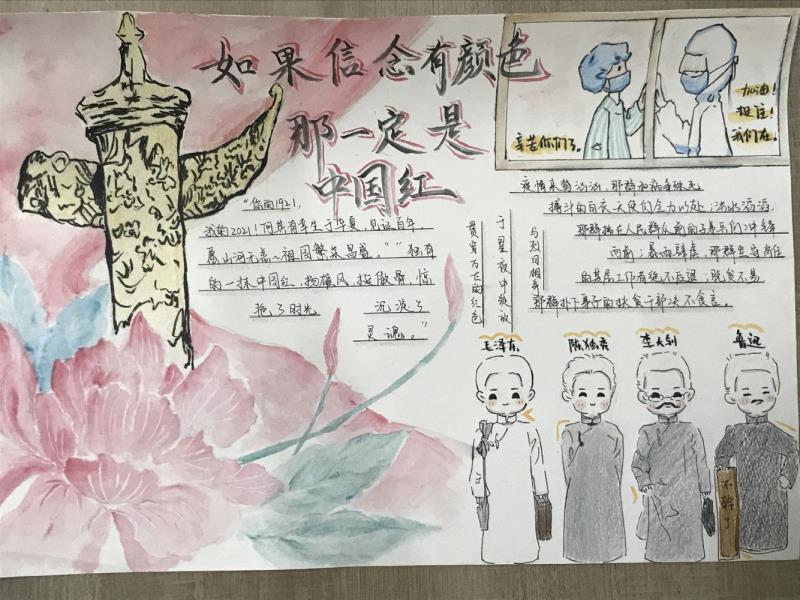 如果信念有颜色
那一定是
中国红
辛苦你们了。
加油！
挺住！
我们在。
"你的1921，
我的2021！何其有幸生于华夏，见证百年
愿山河无恙～祖国繁荣昌盛。""独有
的一抹中国红，扬雄风，挺傲骨，惊
艳了时光 沉淀了
灵魂。"
贯穿万古的红色
于星夜中绽放
与烈日相奔
疫情来势汹汹，那群和病毒殊死
搏斗的白衣天使们在力以赴；洪水滔滔，
那群拥在人民群众前的子弟兵们冲锋
向前；暴雨肆虐，那群坚守岗位
的基层工作者绝不后退；脱贫不易
那群扑下身子的扶贫干部决不食言。
毛泽东
陈独秀
李大钊
鲁迅
不干了